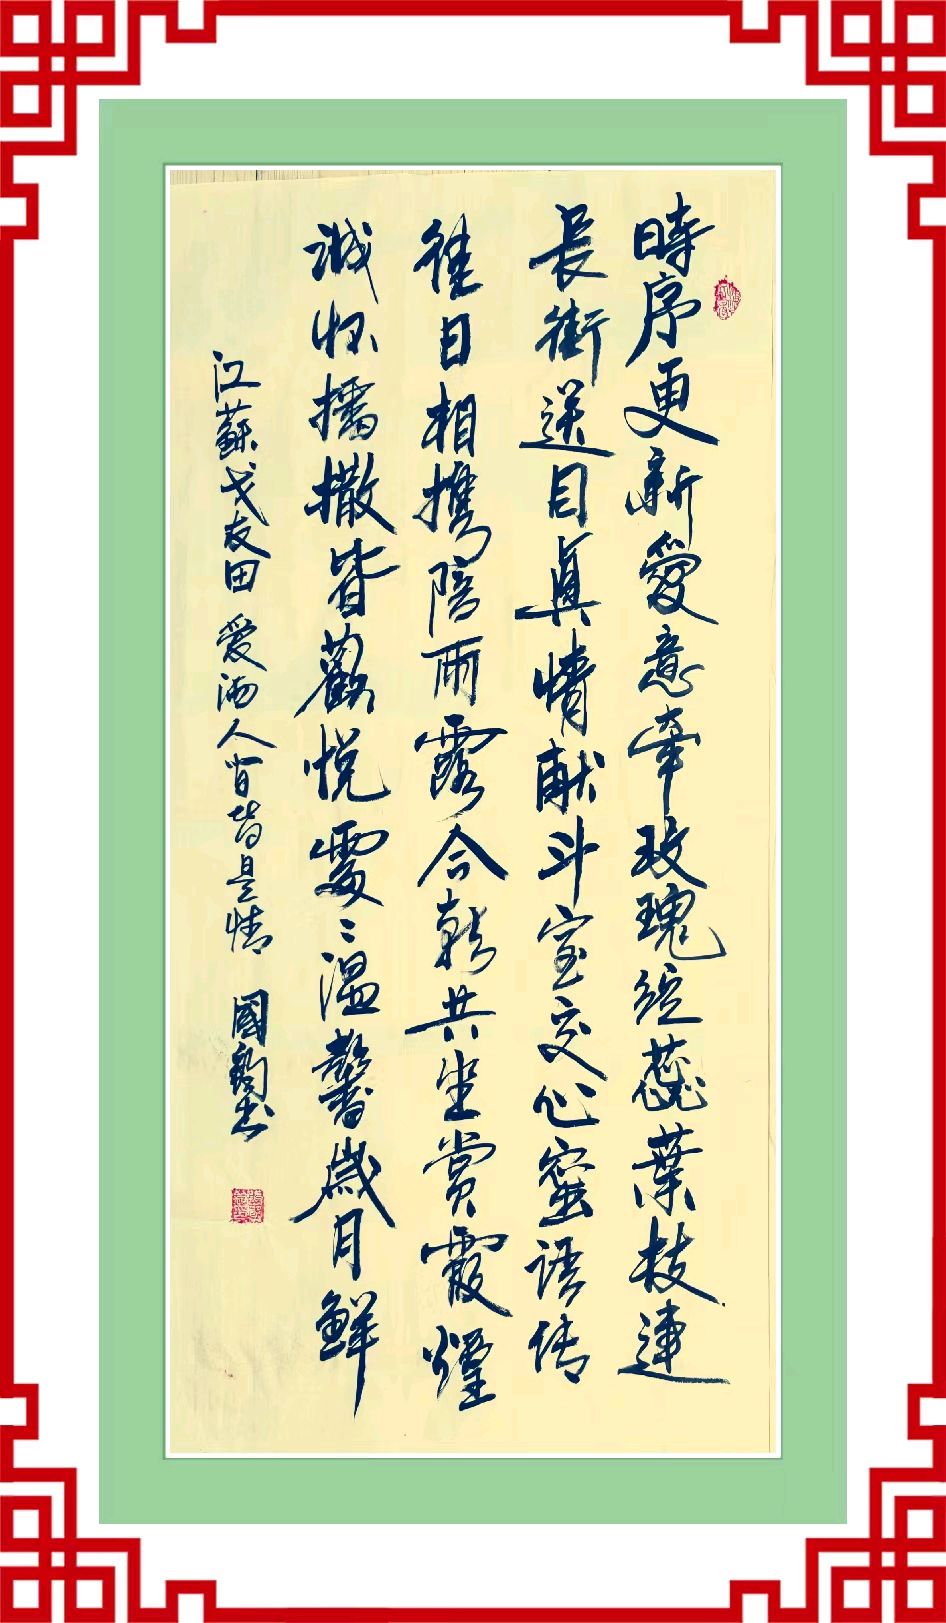 時序更新愛意牽玫瑰綻蕊葉枝連
長街送目真情献斗室交心蜜語传
往日相携陪雨露今朝共坐賞霞煙
誠怀播撒皆歡悦處々温馨歲月鮮
江蘇戈友田 爱洒人间皆是情 國鈞书